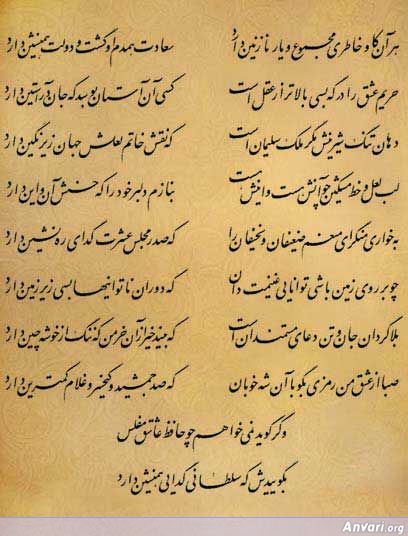 هر آن کاو خاطری مجموع و یار نازنین دارد سعادت همدم او گشت و دولت همنشین دارد
حریم عشق را درگه بسی بالاتر از عقل است کسی آن آستان بوسد که جان در آستین دارد
دهان تنگ شیرینش مگر ملک سلیمان است که نقش خاتم لعلش جهان زیر نگین دارد
لب لعل و خط مشکین چو آنش هست و اینش هست بنازم دلبر خود را که حسنش آن و این دارد
به خواری منگر ای منعم ضعیفان و نحیفان را که صدر مجلس عشرت گدای ره نشین دارد
چو بر روی زمین باشی توانایی غنیمت دان که دوران ناتوانیها بسی زیر زمین دارد
بلاگردان جان و تن دعای مستمندان است که بیند خیر از آن خرمن که ننگ از خوشه چین دارد
صبا از عشق من رمزی بگو با آن شه خوبان که صد جمشید و کیخسرو غلام کمترین دارد
و گر گوید نمی خواهم چو حافظ عاشق مفلس
بگوییدش که سلطانی گدایی همنشین دارد
Anvari.org